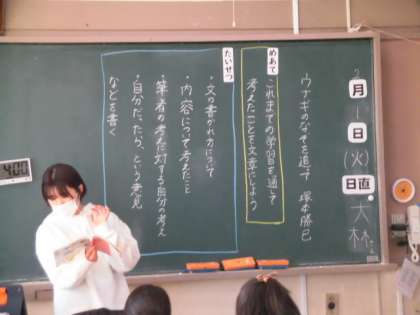 2
月
1
日
(火)
日直
大
ウナギのなぞを追って 塚本勝巳
めあて
これまでの学習を通して
考えたことを文章にしよう
たいせつ
・文の書かれ方について
・内容について考えたこと
・筆者の考えに対する自分の考え
・自分だったら、という意見
などを書く
400